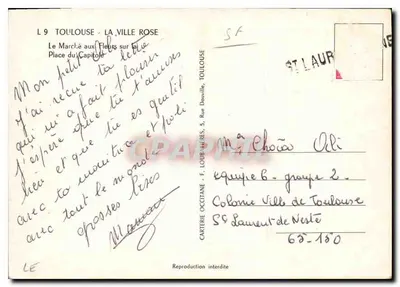 L 9 TOULOUSE - LA VILLE ROSE
Le Marché aux Fleurs sur la
Place du Capitole
Mon petit
j'ai reçue ta lettre
qui m'a fait plaisir
j'espère que tu t'amuses
bien et que tu es gentil
avec ta monitrice et poli
avec tout le monde
grosses bises
Maman
LE
SF
ST LAUR NE
CARTERIE OCCITANE - F. LOUBATIERES, 5, Rue Deville, TOULOUSE
équipe 6 - groupe 2 -
Colonie Ville de Toulouse
St Laurent de Neste
65-150
Reproduction interdite